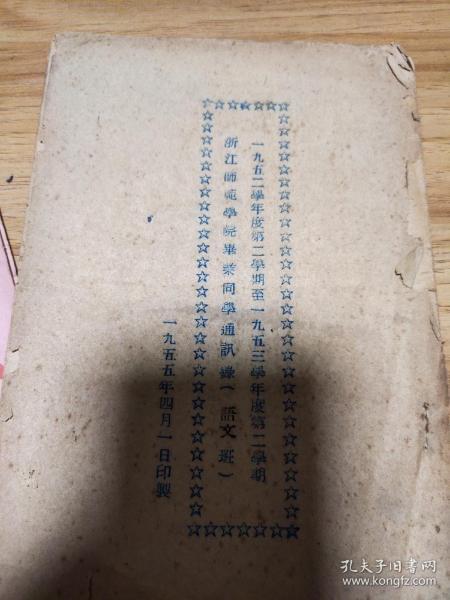 一九五二學年度第二學期至一九五三學年度第二學期
浙江師範學院畢業同學通訊錄(語文班)
一九五五年四月一日印製
孔夫子旧书网
www.kongfz.com